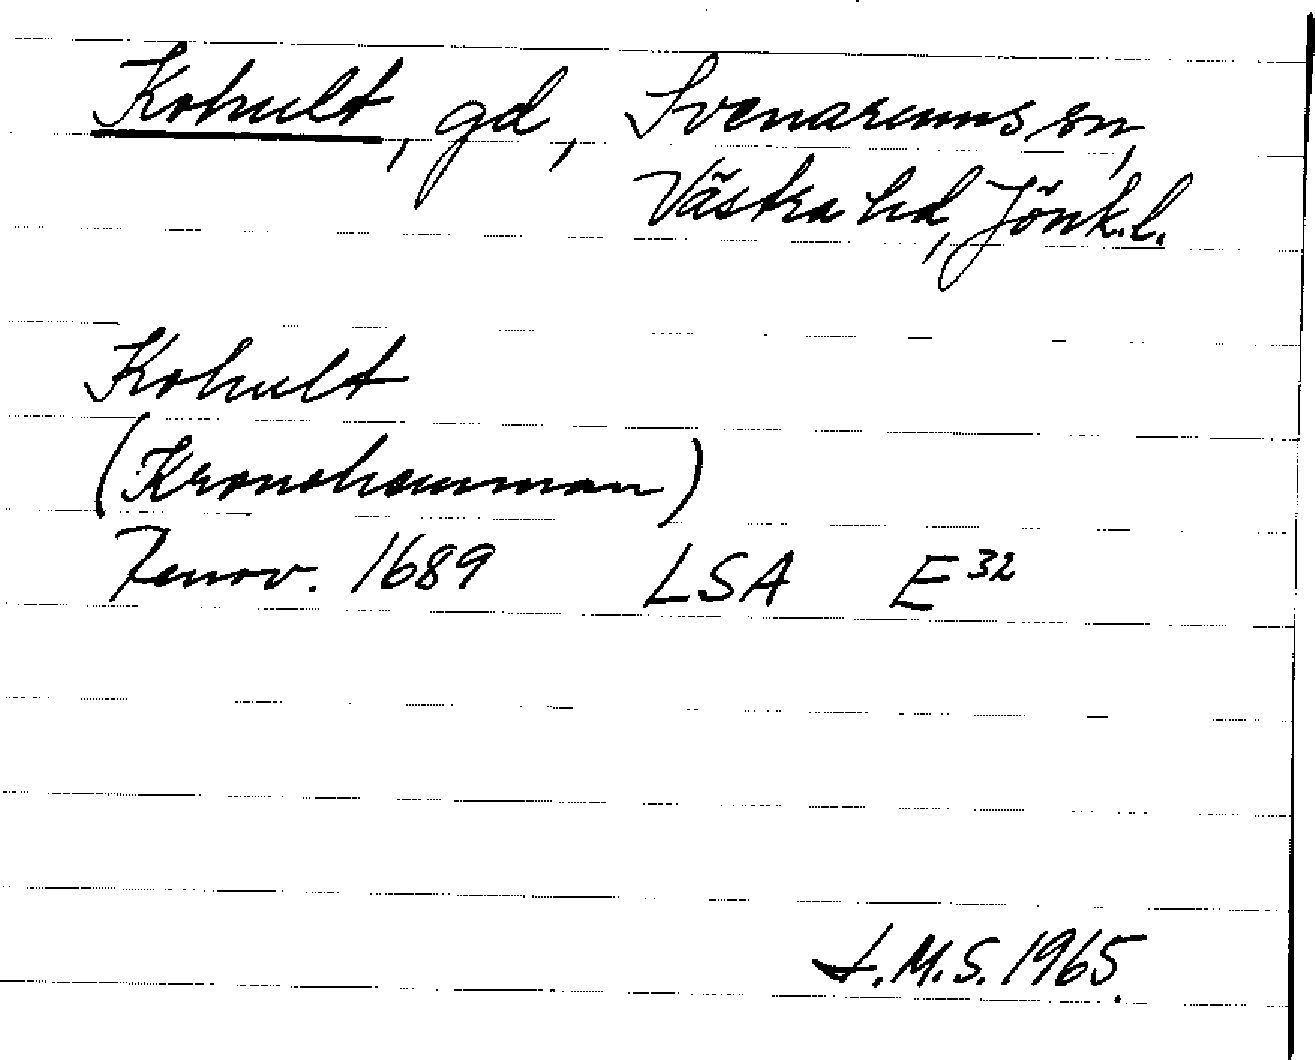 Kohult, gd, Svenarums sn,
Västra hd, Jönk.l.
Kohult
(Kronohemman)
Renov. 1689 LSA E 32
I.M.S. 1965.